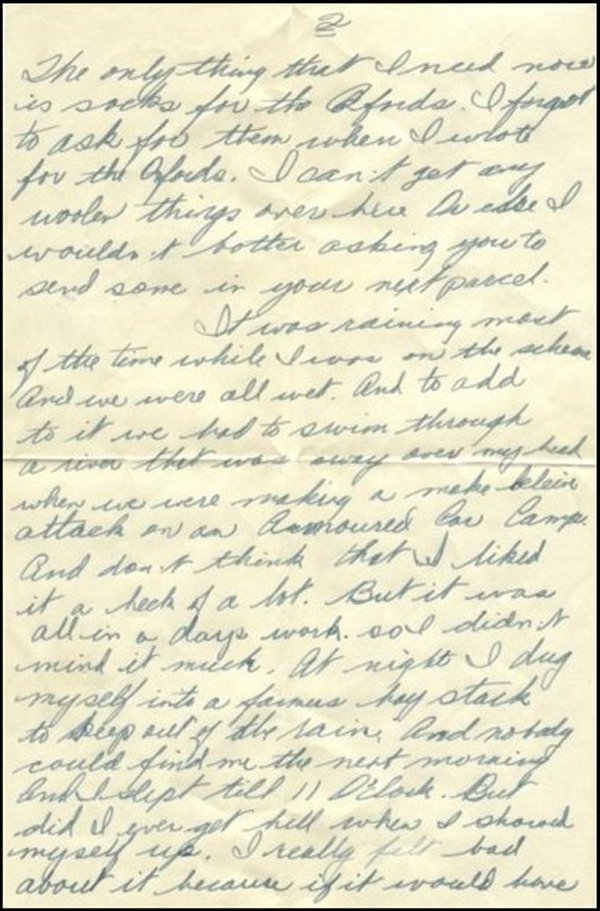 2
The only thing that I need now
is socks for the Oxfords. I forgot
to ask for them when I wrote
for the Oxfords. I can't get any
woolen things over here Or else I
wouldn't bother asking you to
send some in your next parcel.
It was raining most
of the time while I was on the scheme
And we were all wet. And to add
to it we had to swim through
a river that was away over my head
when we were making a make beleive
attack on an Armoured Car Camp.
And don't think that I liked
it a heck of a lot. But it was
all in a days work. so I didn't
mind it much. At night I dug
myself into a farmers hay stack
to keep out of the rain. And nobody
could find me the next morning
And I slept till 11 O'Clock. But
did I ever get hell when I showed
myself up. I really felt bad
about it because if it would have